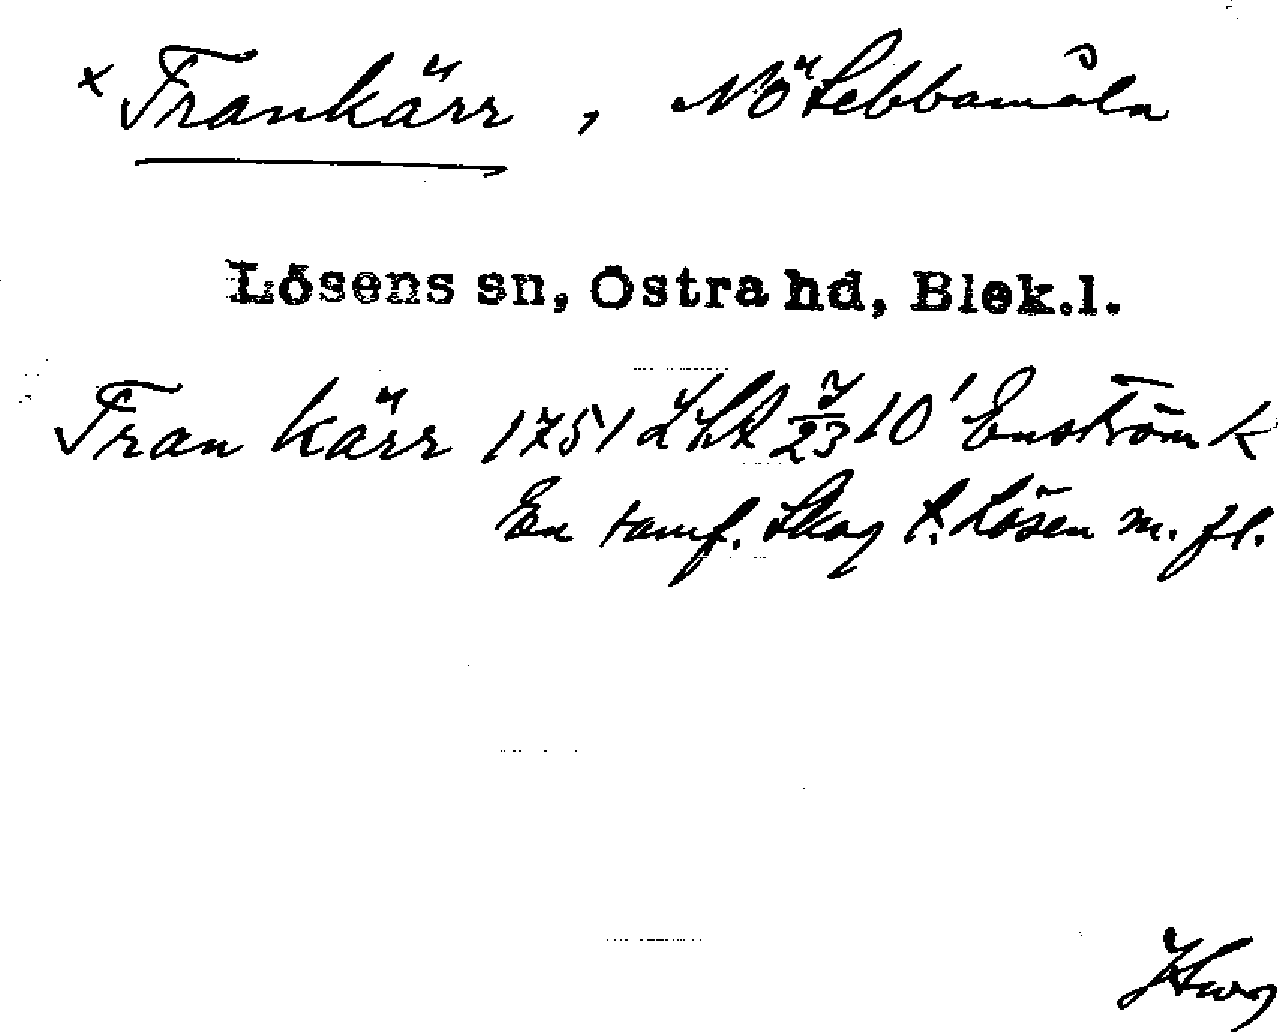 × Frankärr, NÖ Sebbamåla
Lösens sn, Östra hd, Blek.l.
Fran kärr 1751 Lht 10' Enström K
En samf. Skog t. Lösen m. fl.